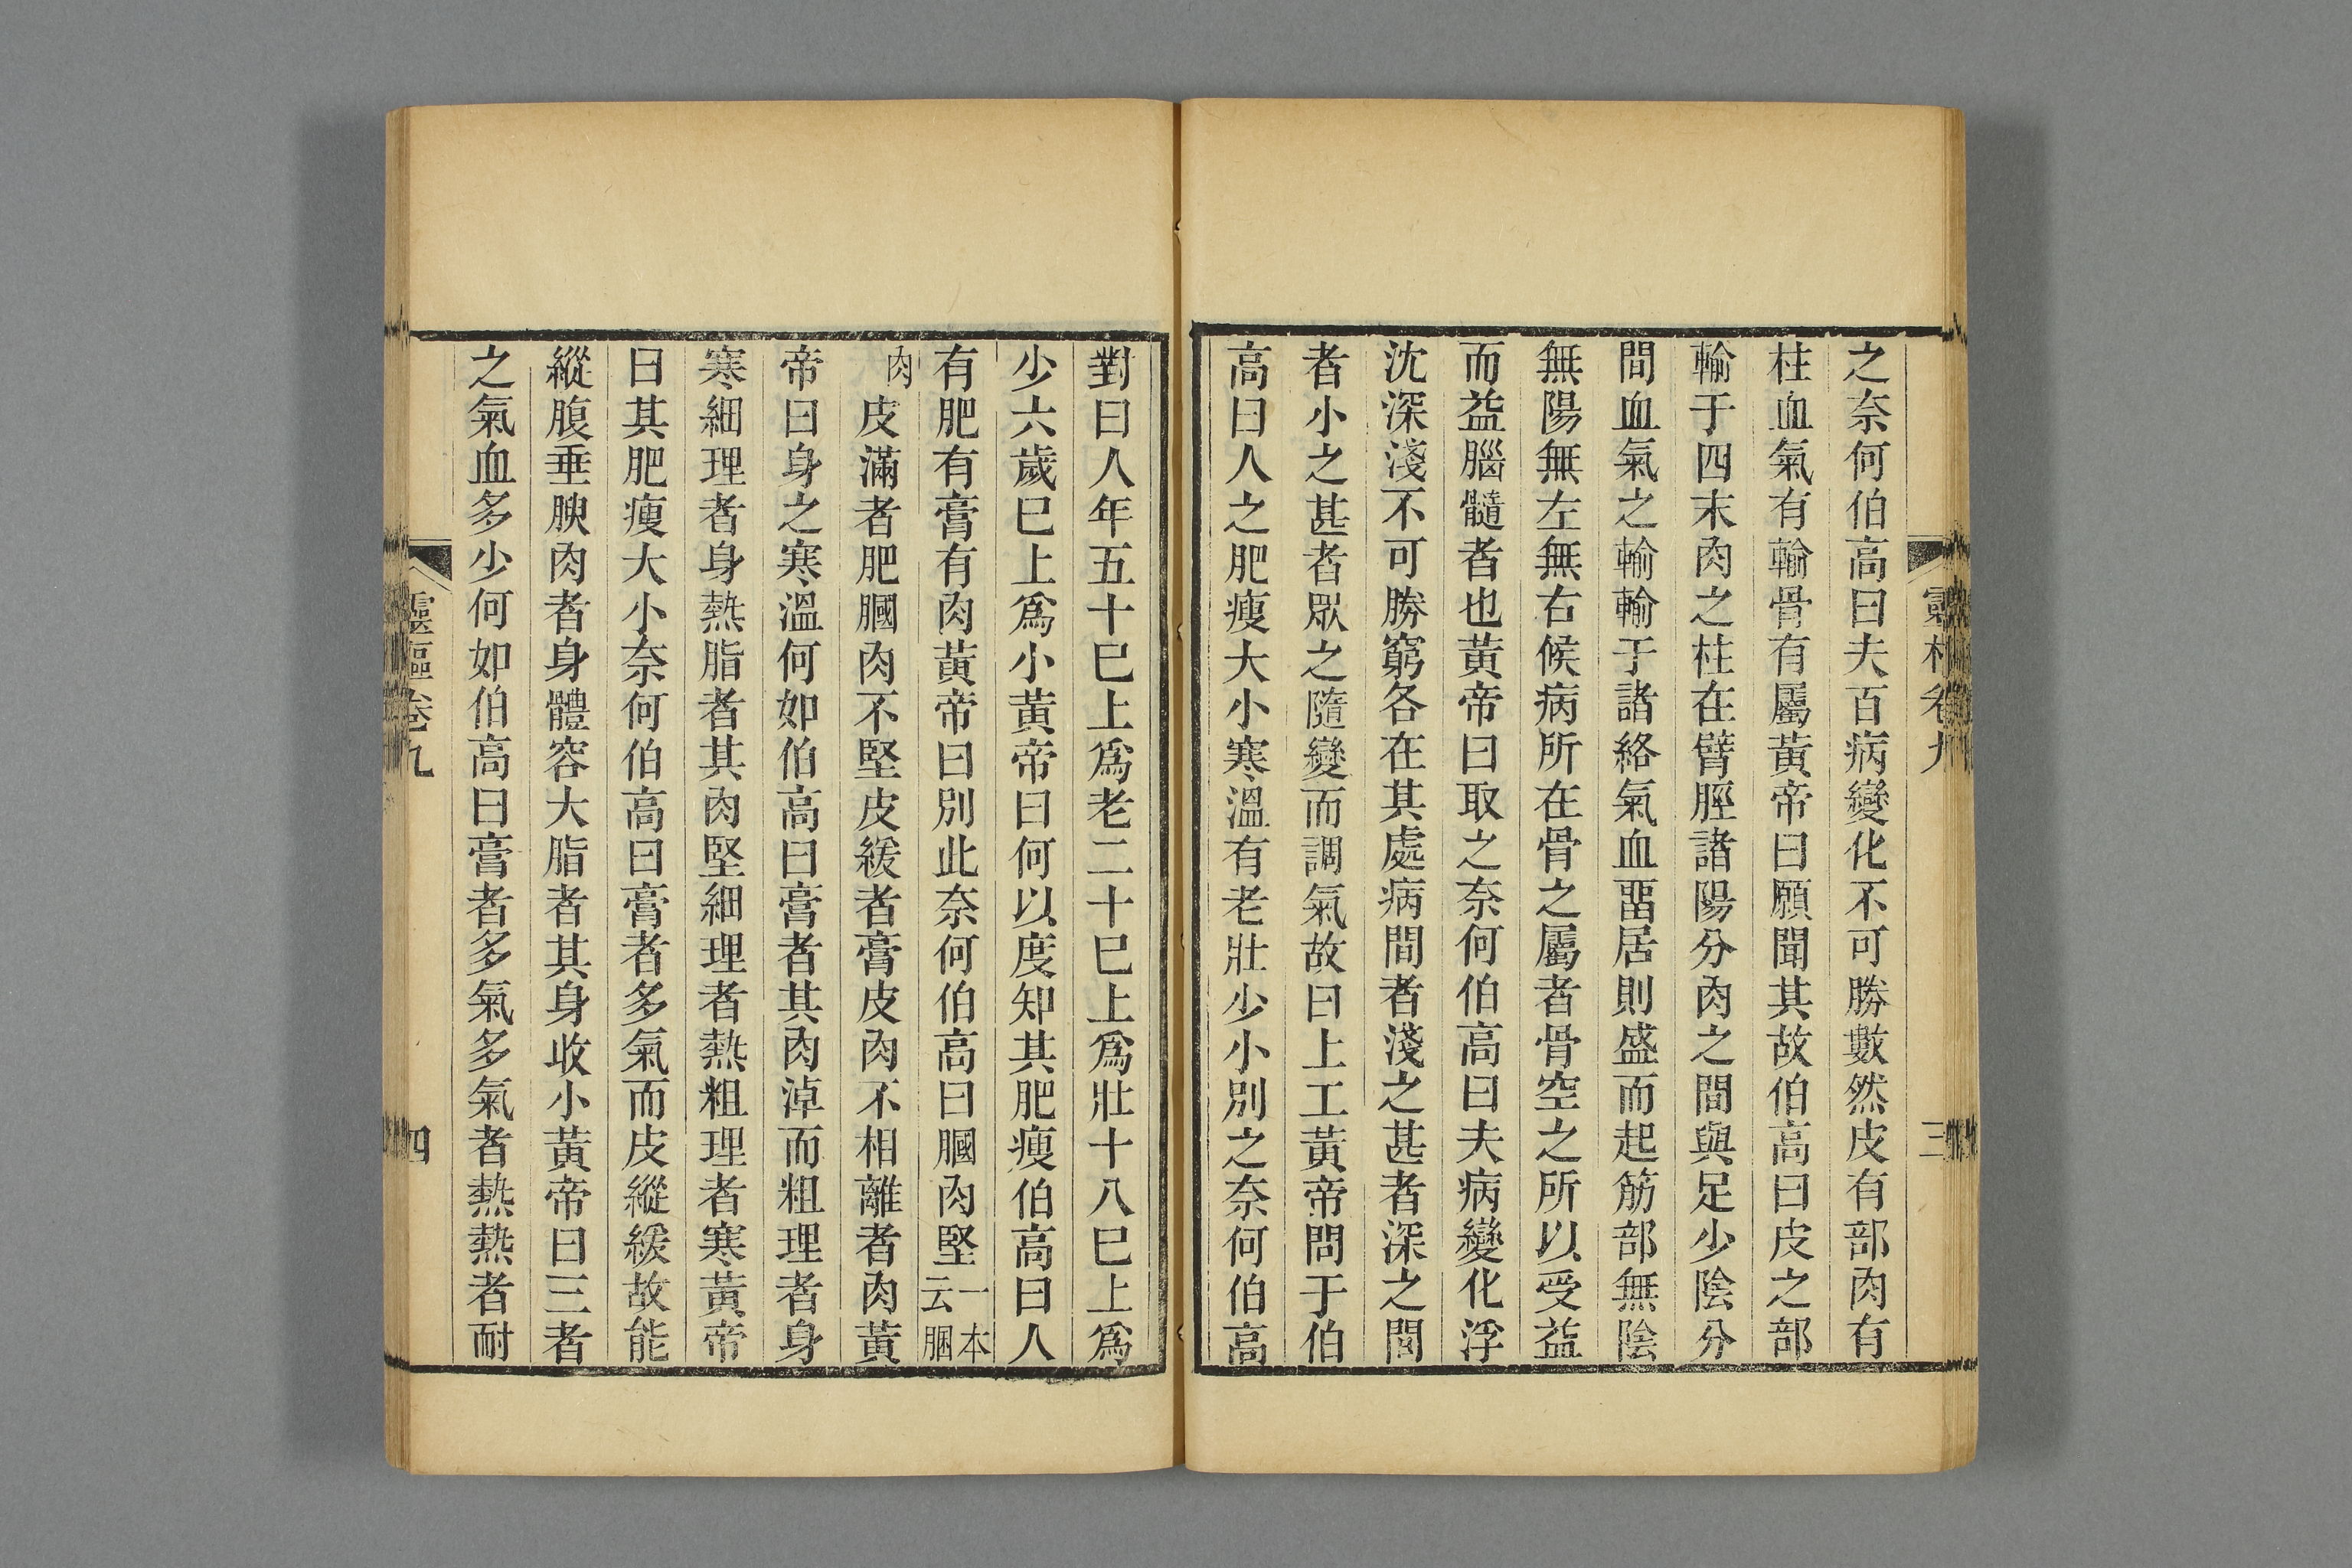 之奈何伯高曰夫百病變化不可勝數然皮有部肉有
柱血氣有輸骨有屬黃帝曰願聞其故伯高曰皮之部
輸于四末肉之柱在臂脛諸陽分肉之間與足少陰分
間血氣之輸輸于諸絡氣血畱居則盛而起筋部無陰
無陽無左無右候病所在骨之屬者骨空之所以受益
而益腦髓者也黃帝曰取之奈何伯高曰夫病變化浮
沈深淺不可勝窮各在其處病間者淺之甚者深之間
者小之甚者眾之隨變而調氣故曰上工黃帝問于伯
高曰人之肥瘦大小寒溫有老壯少小別之奈何伯高
對曰人年五十巳上爲老二十巳上爲壯十八巳上爲
少六歲巳上爲小黃帝曰何以度知其肥瘦伯高曰人
有肥有膏有肉黃帝曰別此奈何伯高曰膕肉堅一本云膕
肉皮滿者肥膕肉不堅皮緩者膏皮肉不相離者肉黃
帝曰身之寒溫何如伯高曰膏者其肉淖而粗理者身
寒細理者身熱脂者其肉堅細理者熱粗理者寒黃帝
曰其肥瘦大小奈何伯高曰膏者多氣而皮縱緩故能
縱腹垂腴肉者身體容大脂者其身收小黃帝曰三者
之氣血多少何如伯高曰膏者多氣多氣者熱熱者耐
靈樞卷九
四